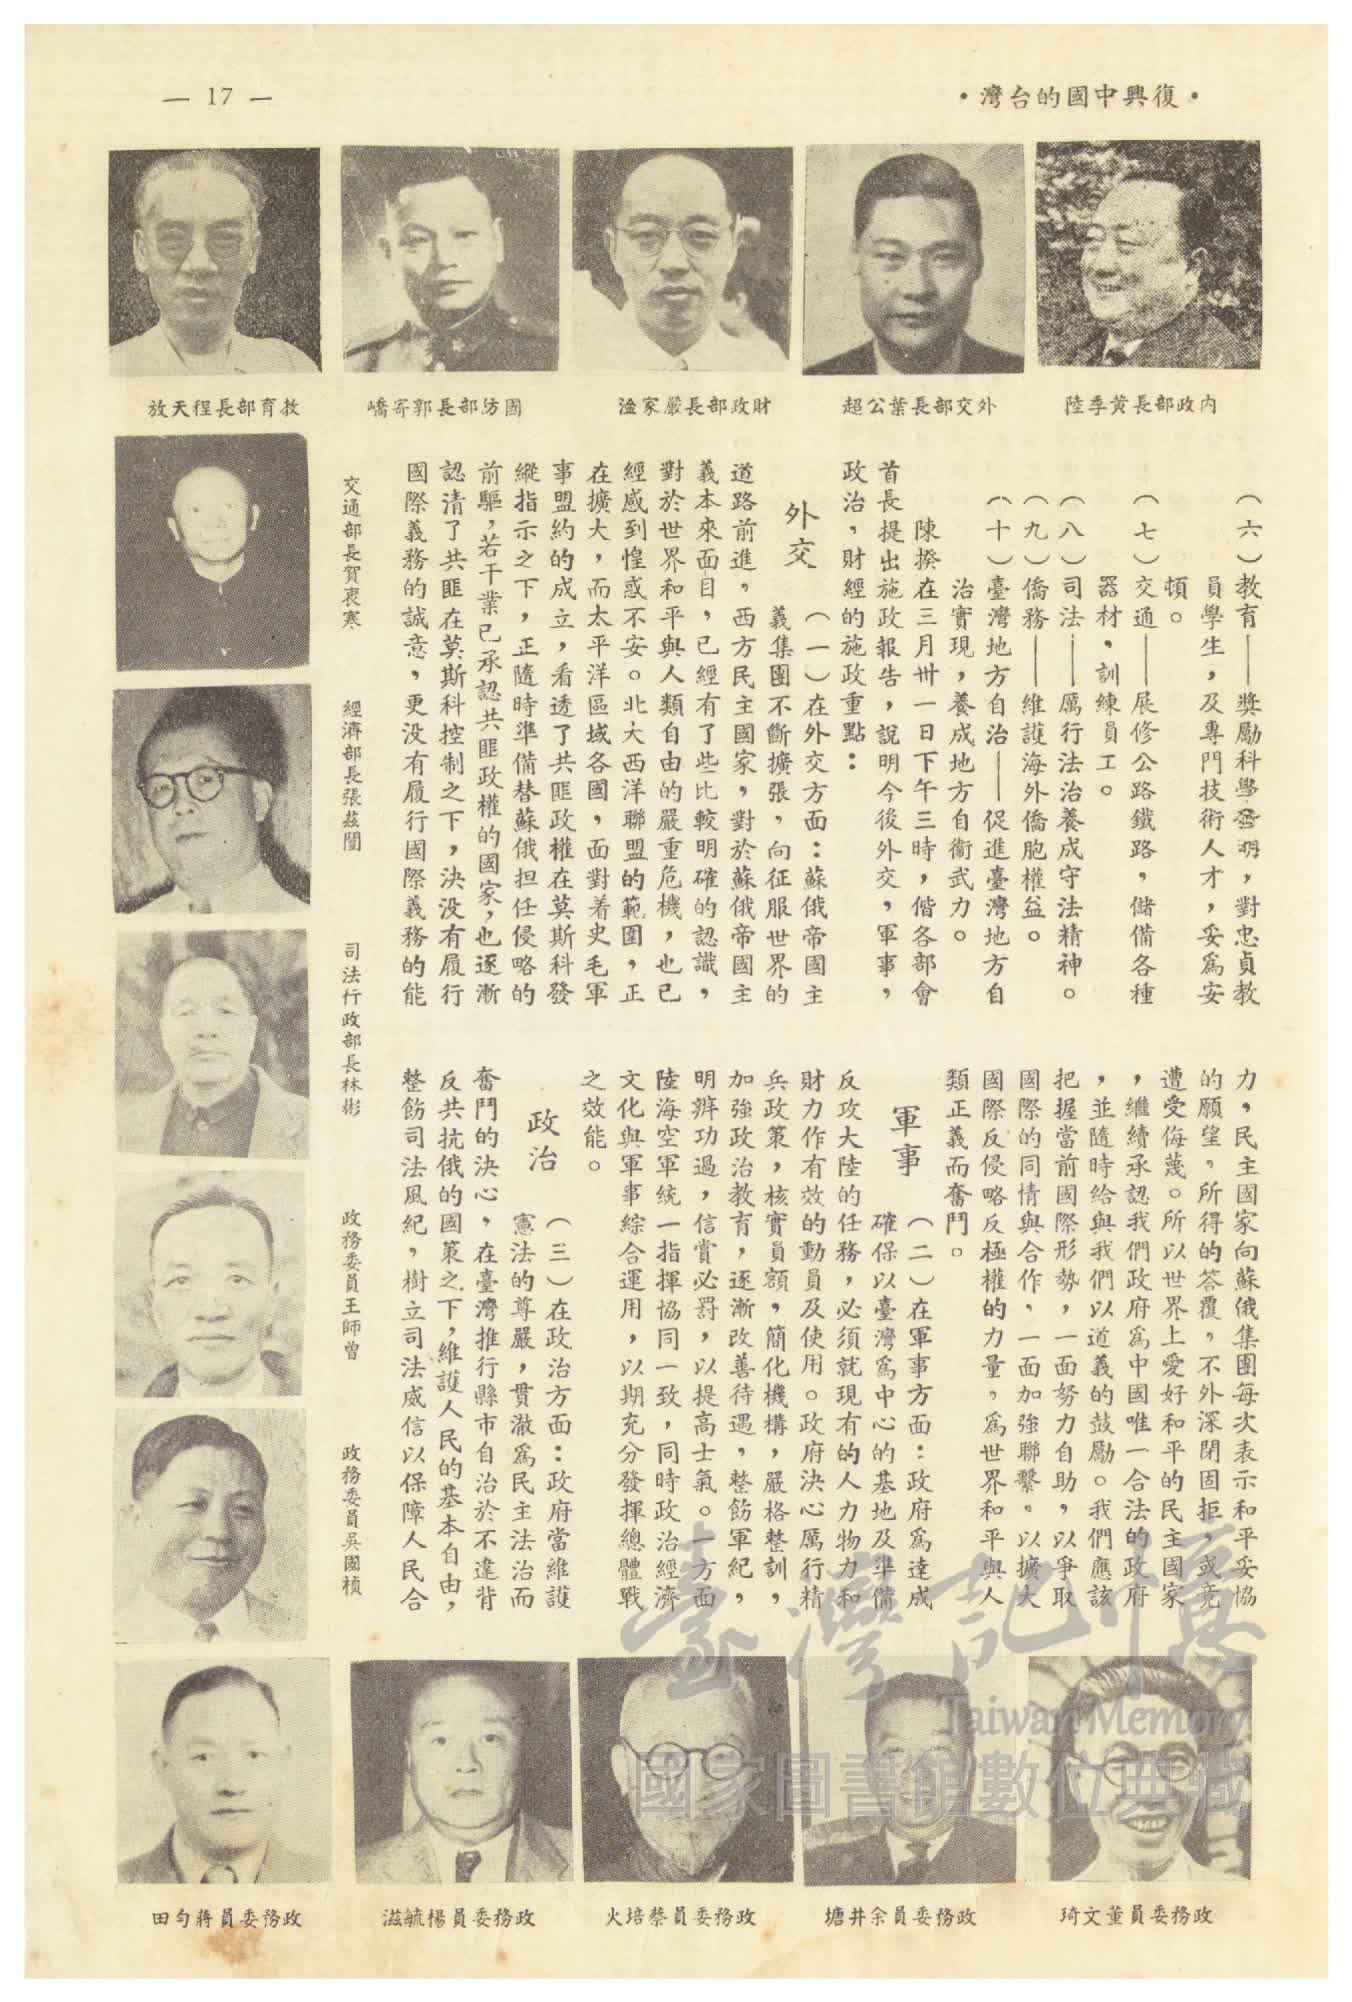 •復興中國的台灣•
— 17 —
內政部長黃季陸
外交部長葉公超
財政部長嚴家淦
國防部長郭寄嶠
教育部長程天放
交通部長賀衷寒
經濟部長張茲闓
司法行政部長林彬
政務委員王師曾
政務委員吳國楨
(六)教育——獎勵科學發明,對忠貞教
員學生,及專門技術人才,妥為安
頓。
(七)交通——展修公路鐵路,儲備各種
器材,訓練員工。
(八)司法——厲行法治養成守法精神。
(九)僑務——維護海外僑胞權益。
(十)臺灣地方自治——促進臺灣地方自
治實現,養成地方自衞武力。
陳揆在三月卅一日下午三時,偕各部會
首長提出施政報告,說明今後外交,軍事,
政治,財經的施政重點:
外交
(一)在外交方面:蘇俄帝國主
義集團不斷擴張,向征服世界的
道路前進,西方民主國家,對於蘇俄帝國主
義本來面目,已經有了些比較明確的認識,
對於世界和平與人類自由的嚴重危機,也已
經感到惶惑不安。北大西洋聯盟的範圍,正
在擴大,而太平洋區域各國,面對着史毛軍
事盟約的成立,看透了共匪政權在莫斯科發
縱指示之下,正隨時準備替蘇俄担任侵略的
前驅,若干業已承認共匪政權的國家,也逐漸
認清了共匪在莫斯科控制之下,決没有履行
國際義務的誠意,更没有履行國際義務的能
力,民主國家向蘇俄集團每次表示和平妥協
的願望,所得的答覆,不外深閉固拒,或竟
遭受侮蔑。所以世界上愛好和平的民主國家
,繼續承認我們政府為中國唯一合法的政府
,並隨時給與我們以道義的鼓勵。我們應該
把握當前國際形勢,一面努力自助,以爭取
國際的同情與合作,一面加強聯繫,以擴大
國際反侵略反極權的力量,為世界和平與人
類正義而奮鬥。
軍事
(二)在軍事方面:政府為達成
確保以臺灣為中心的基地及準備
反攻大陸的任務,必須就現有的人力物力和
財力作有效的動員及使用。政府決心厲行精
兵政策,核實員額,簡化機構,嚴格整訓,
加強政治教育,逐漸改善待遇,整飭軍紀,
明辨功過,信賞必罰,以提高士氣。一方面
陸海空軍統一指揮協同一致,同時政治經濟
文化與軍事綜合運用,以期充分發揮總體戰
之效能。
政治
(三)在政治方面:政府當維護
憲法的尊嚴,貫澈為民主法治而
奮鬥的決心,在臺灣推行縣市自治於不違背
反共抗俄的國策之下,維護人民的基本自由,
整飭司法風紀,樹立司法威信以保障人民合
政務委員董文琦
政務委員余井塘
政務委員蔡培火
政務委員楊毓滋
政務委員蔣勻田
臺灣記憶
Taiwan Memory
國家圖書館數位典藏